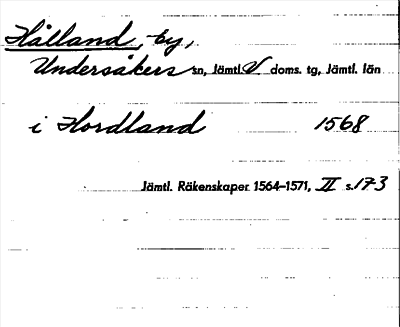 Hålland, by,
Undersåkers sn, Jämtl. V doms. tg, Jämtl. län
i Hordland 1568
Jämtl. Räkenskaper 1564-1571, II s. 173